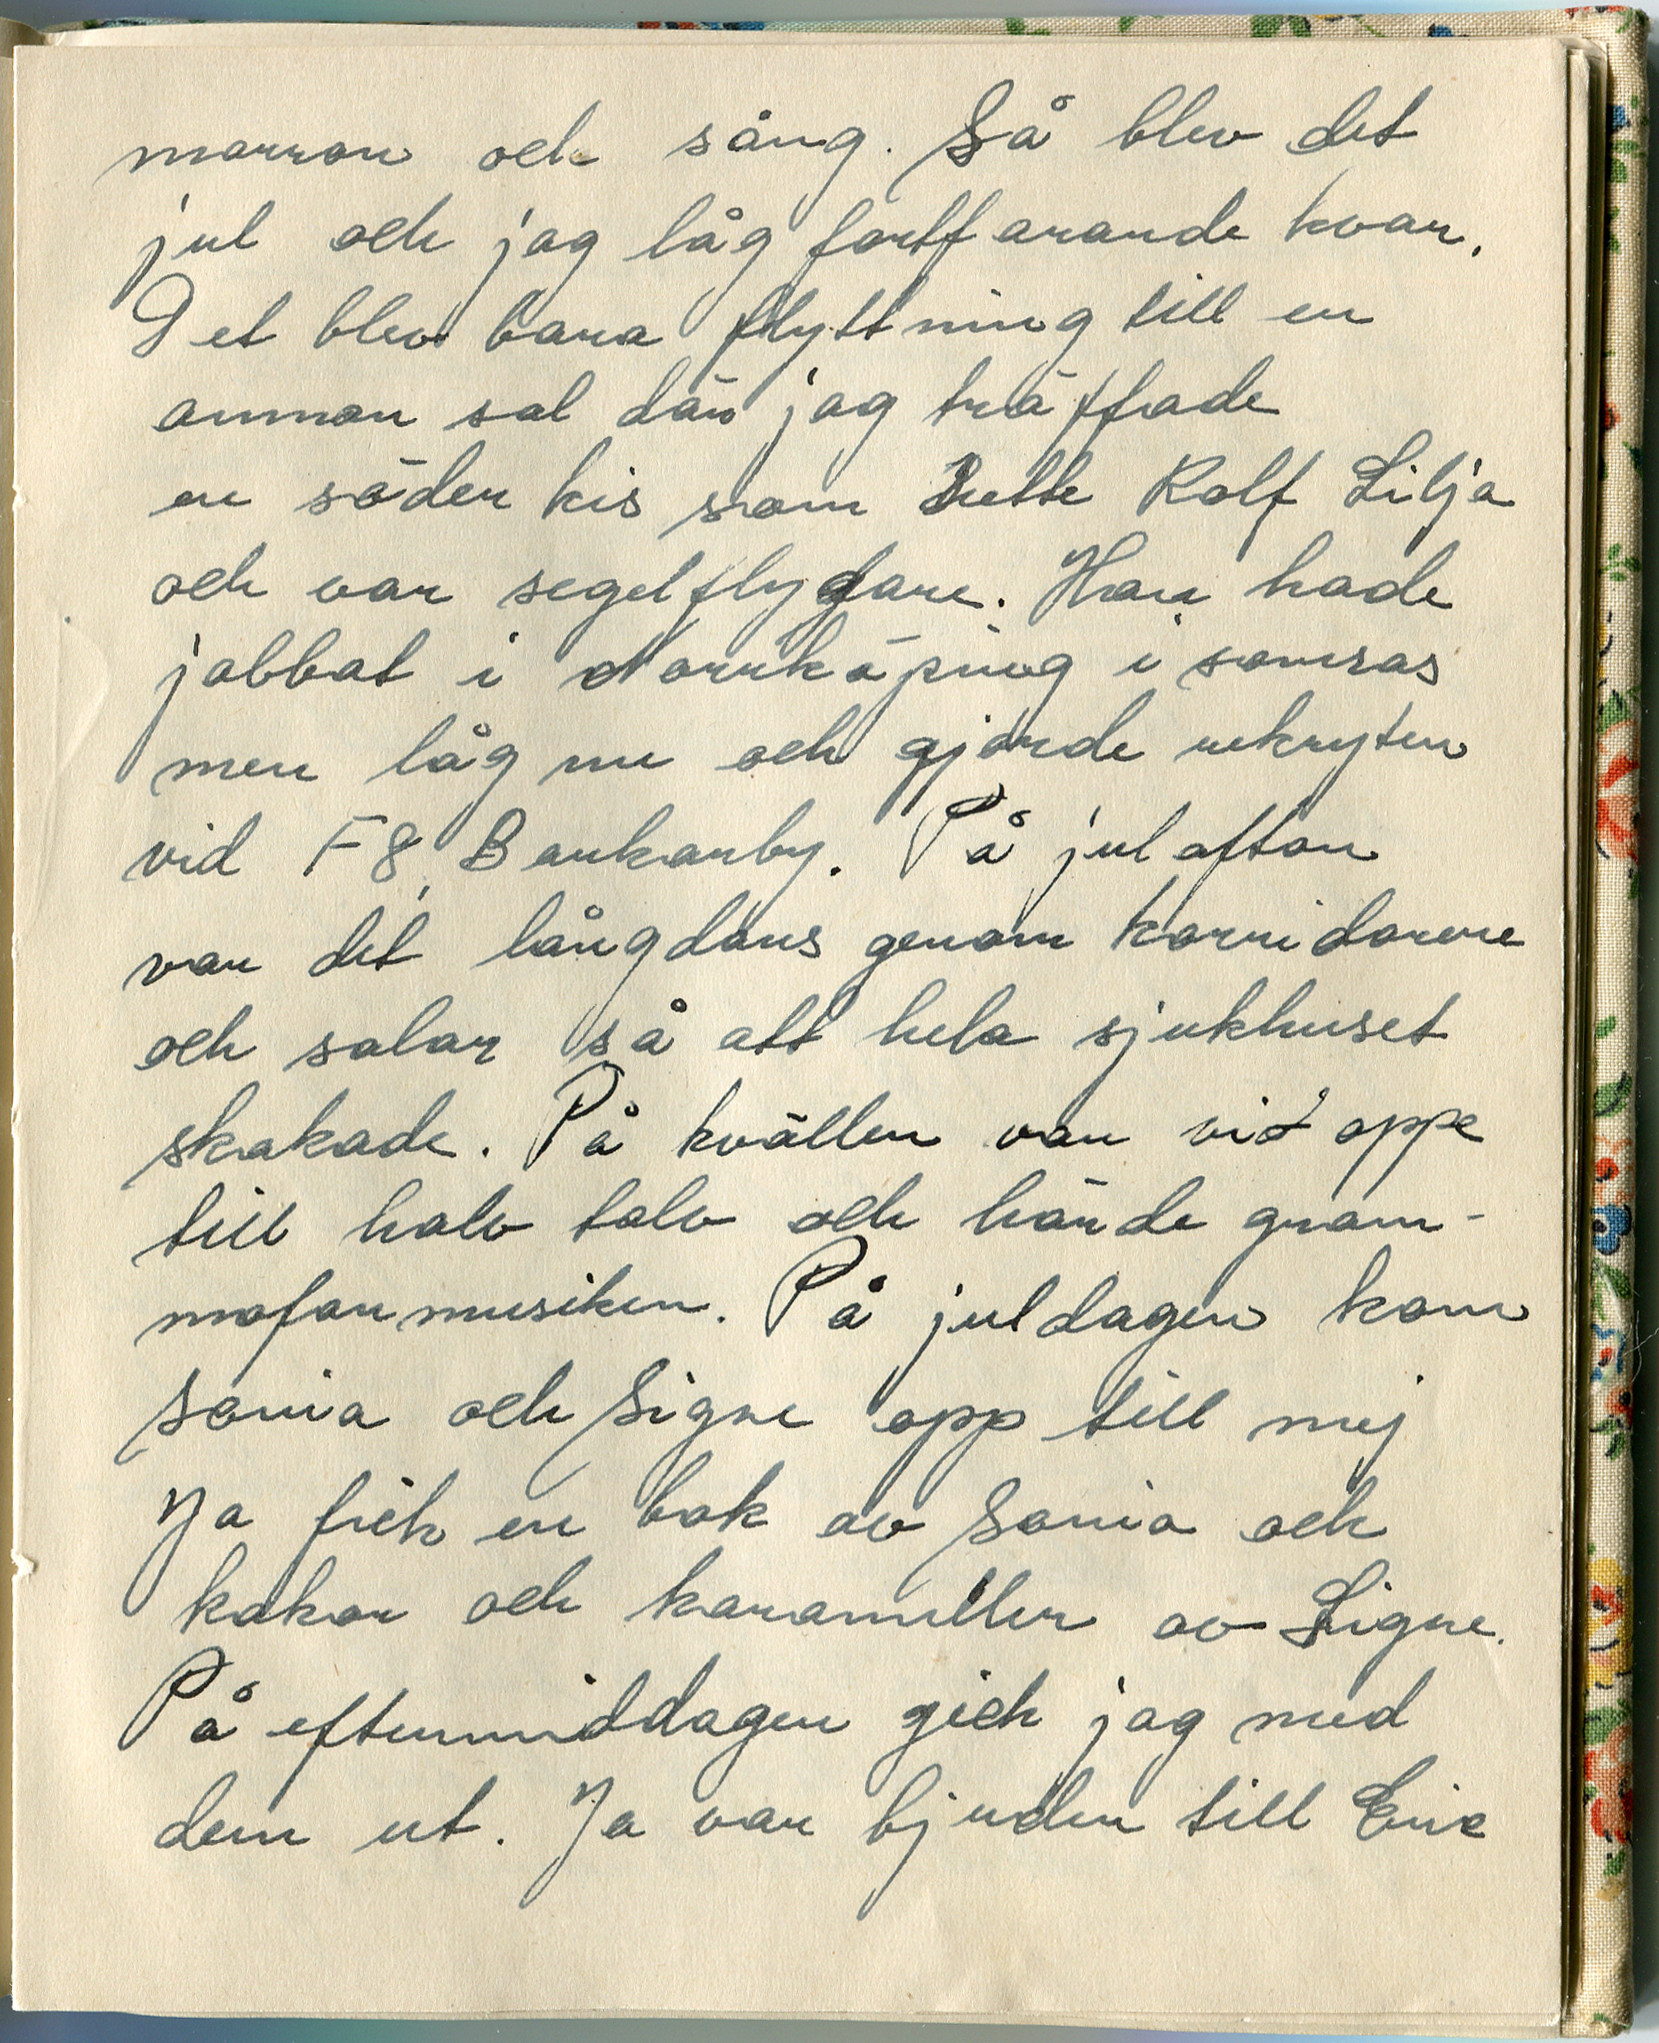 morron och sång. Så blev det
jul och jag låg fortfarande kvar.
Det blev bara flyttning till en
annan sal där jag träffade
en söder kis som hette Rolf Lilja
och var segelflygare. Han hade
jobbat i Norrköping i somras
men låg nu och gjorde rekryten
vid F8, Barkarby. På julafton
var det långdans genom korridorer
och salar så att hela sjukhuset
skakade. På kvällen var vi oppe
till halv tolv och hörde gram-
mofonmusiken. På juldagen kom
Sonia och Signe opp till mej
Ja fick en bok av Sonia och
kakor och karameller av Signe.
På eftermiddagen gick jag med
dem ut. Ja var bjuden till Eric